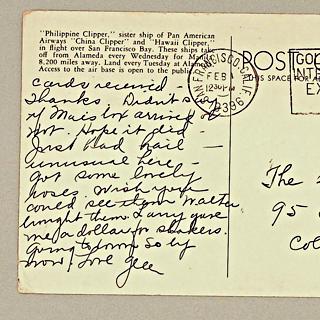 "Philippine Clipper," sister ship of Pan American
Airways "China Clipper" and "Hawaii Clipper,"
in flight over San Francisco Bay. These ships take
off from Alameda every Wednesday for Manila
8,200 miles away. Land every Tuesday at Alameda
Access to the air base is open to the public.
cards received -
Thanks. Didn't say
if box arrived or
not. Hope it did -
Just had hail —
unusual here -
Got some lovely
hoses. Wish you
could see them Walter
bought them. Larry gave
me a dollar for shakers.
Going to town So by
now! Love
SAN FRANCISCO, CALIF.
FEB
12 30 PM
1936
POST
THIS SPACE FOR
GOL
INTE
EX
The
95
Col